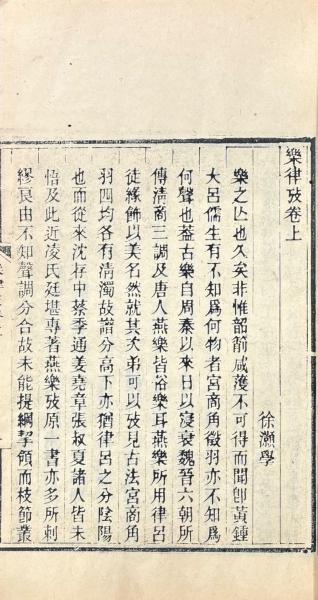 樂律攷卷上
徐灝學
樂之亾也久矣非惟韶箾咸護不可得而聞卽黃鍾
大呂儒生有不知爲何物者宮商角徵羽亦不知爲
何聲也葢古樂自周秦以來日以寖衰魏晉六朝所
傳淸商三調及唐人燕樂皆俗樂耳燕樂所用律呂
徒緣飾以美名然就其次弟可以攷見古法宮商角
羽四均各有淸濁故諧分高下亦猶律呂之分陰陽
也而從來沈存中蔡季通姜堯章張叔夏諸人皆未
悟及此近凌氏廷堪專著燕樂攷原一書亦多所刺
繆良由不知聲調分合故未能提綱挈領而枝節叢